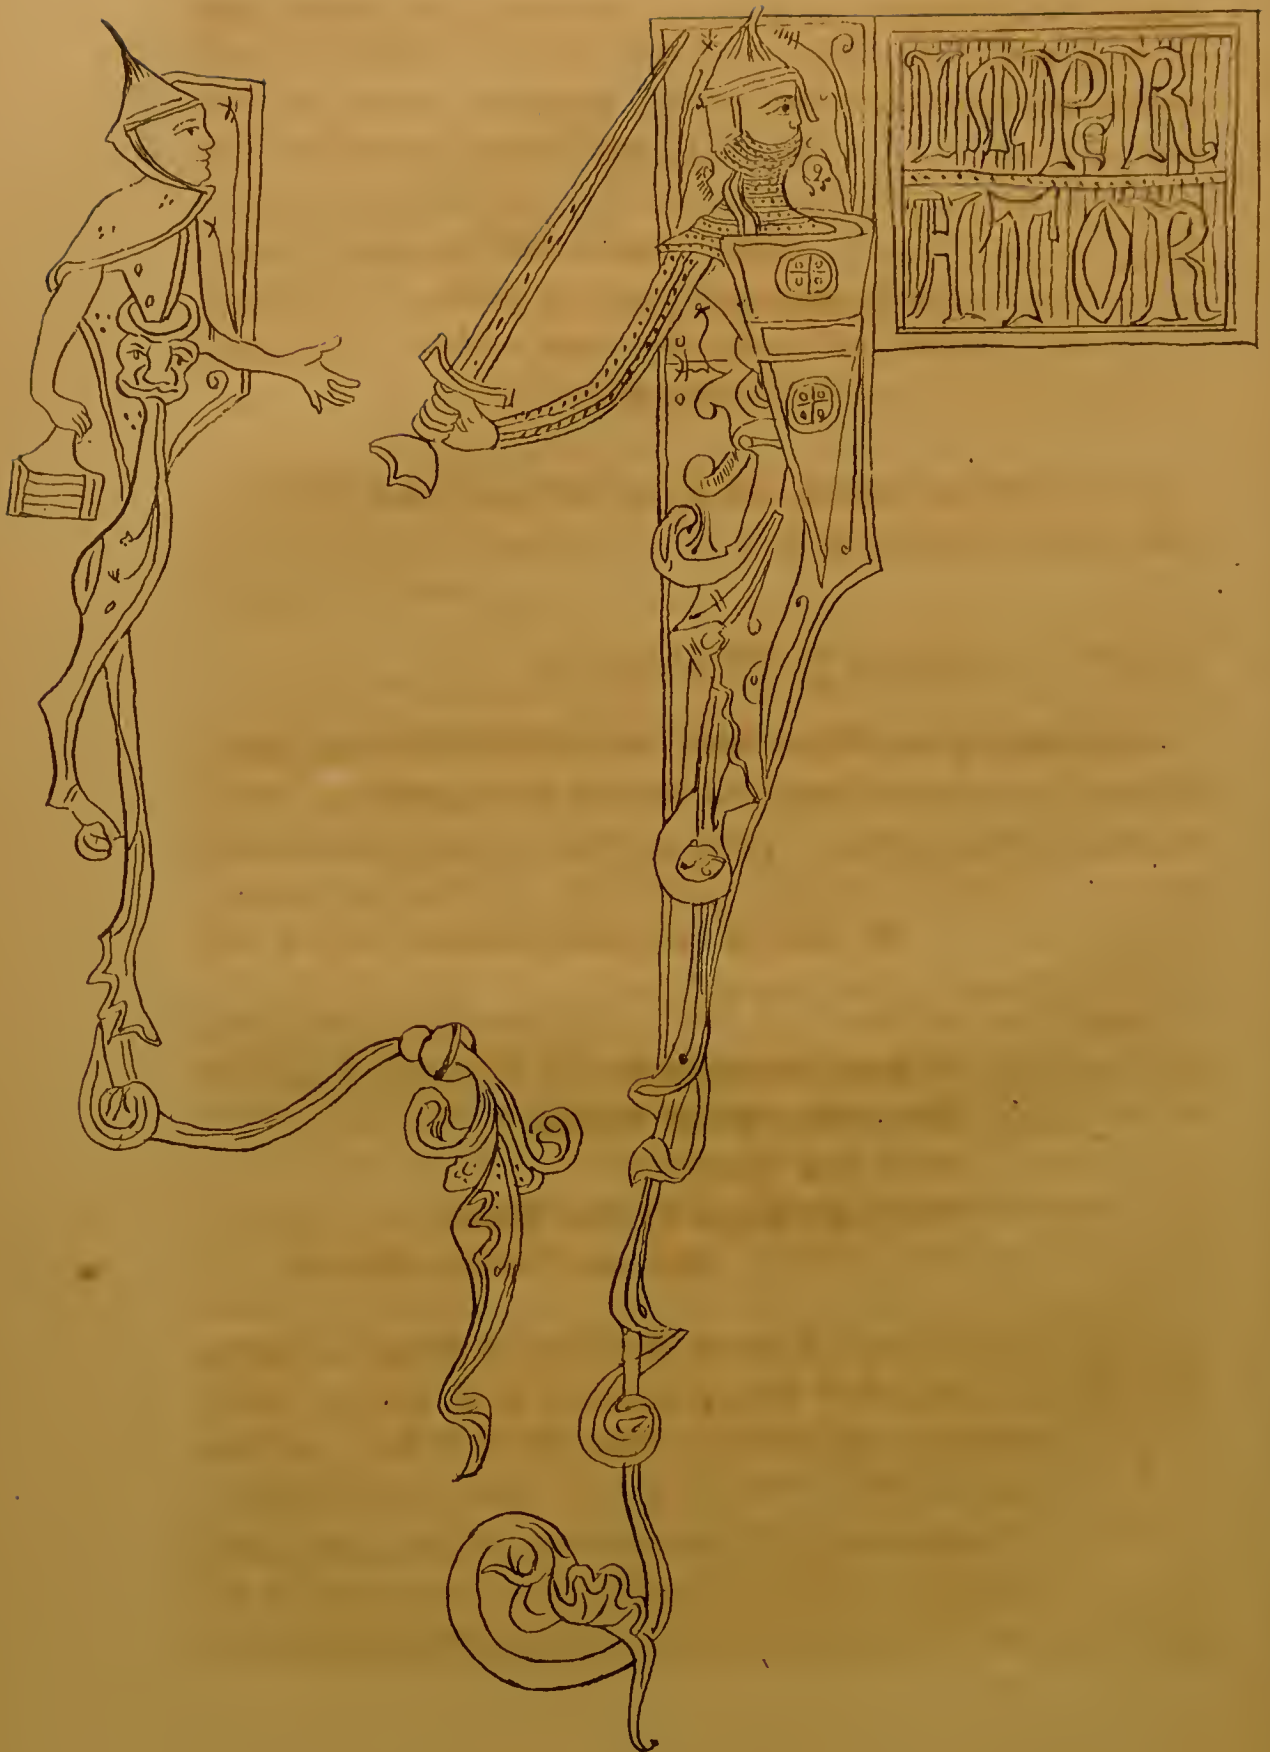 IMPeR
ATOR